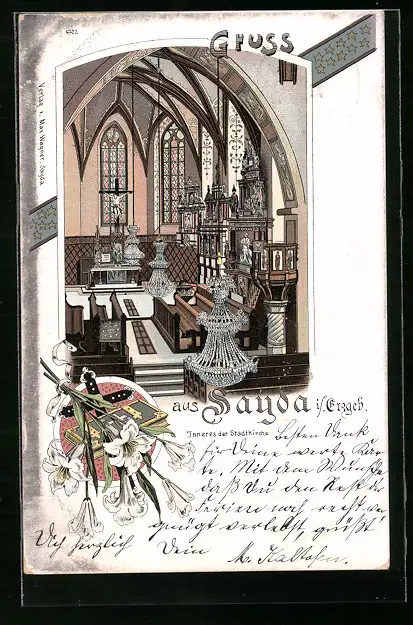 4722
Gruss
Verlag v. Max Wagner, Sayda
aus Sayda i/Erzgeb.
Inneres der Stadtkirche
Besten Dank
für Deine werte Kar=
te. Mit dem Wunsche
daß Du den Rest der
Ferien noch recht ver
gnügt verlebst, grüßt
Dich herzlich Dein